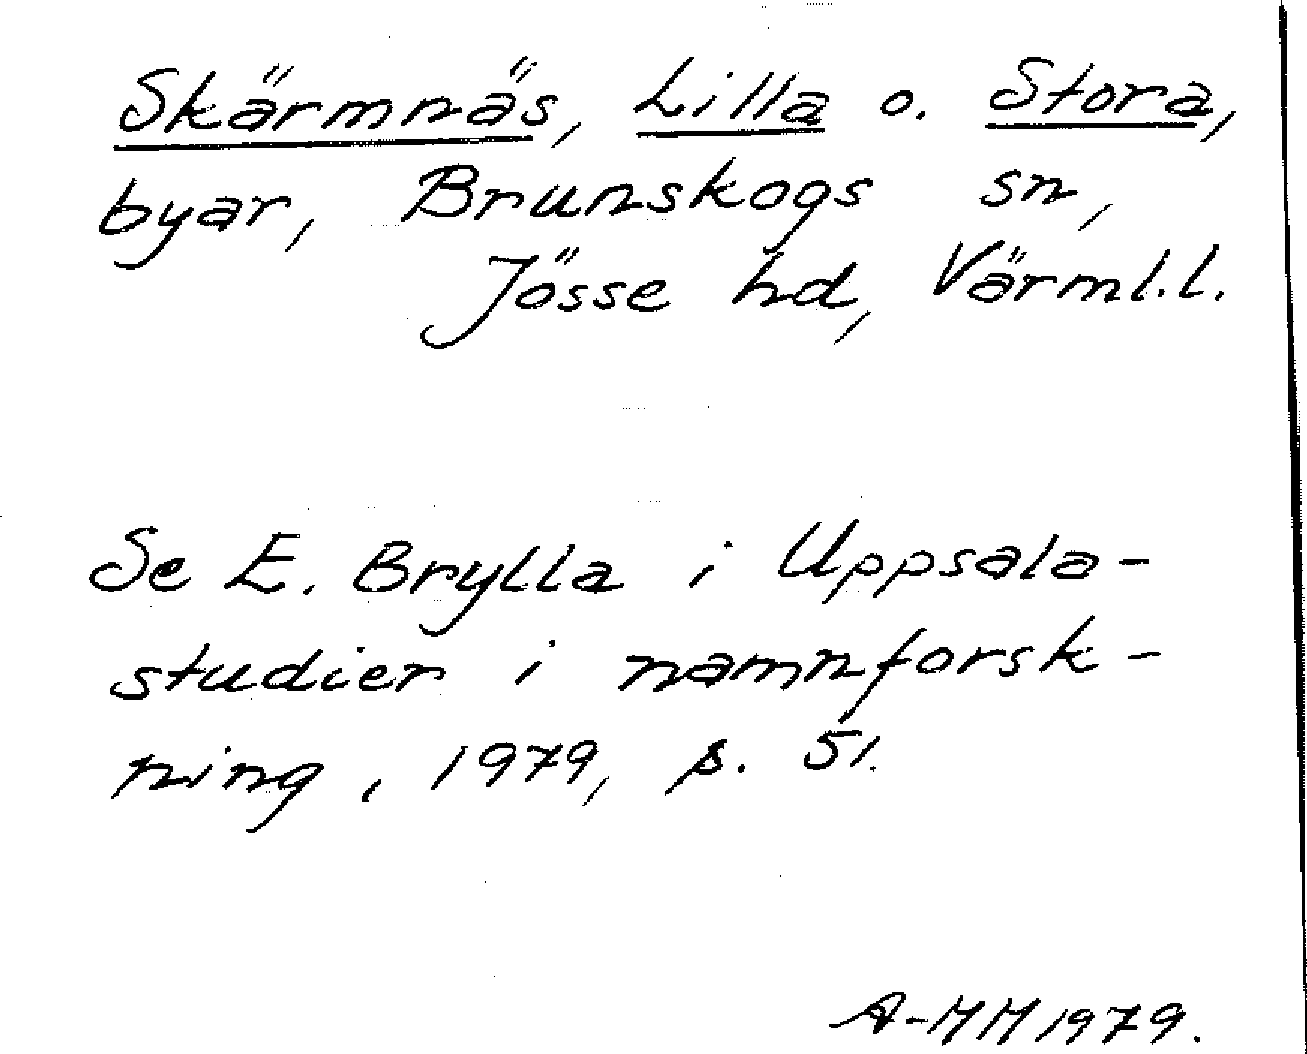 Skärmnäs, Lilla o. Stora,
byar, Brunskogs sn,
Jösse hd, Värml.l.
Se E. Brylla i Uppsala-
studier i namnforsk-
ning, 1979, s. 51.
A-MM 1979.